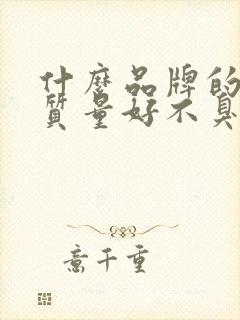 什麼品牌的
質量好不臭
意千重